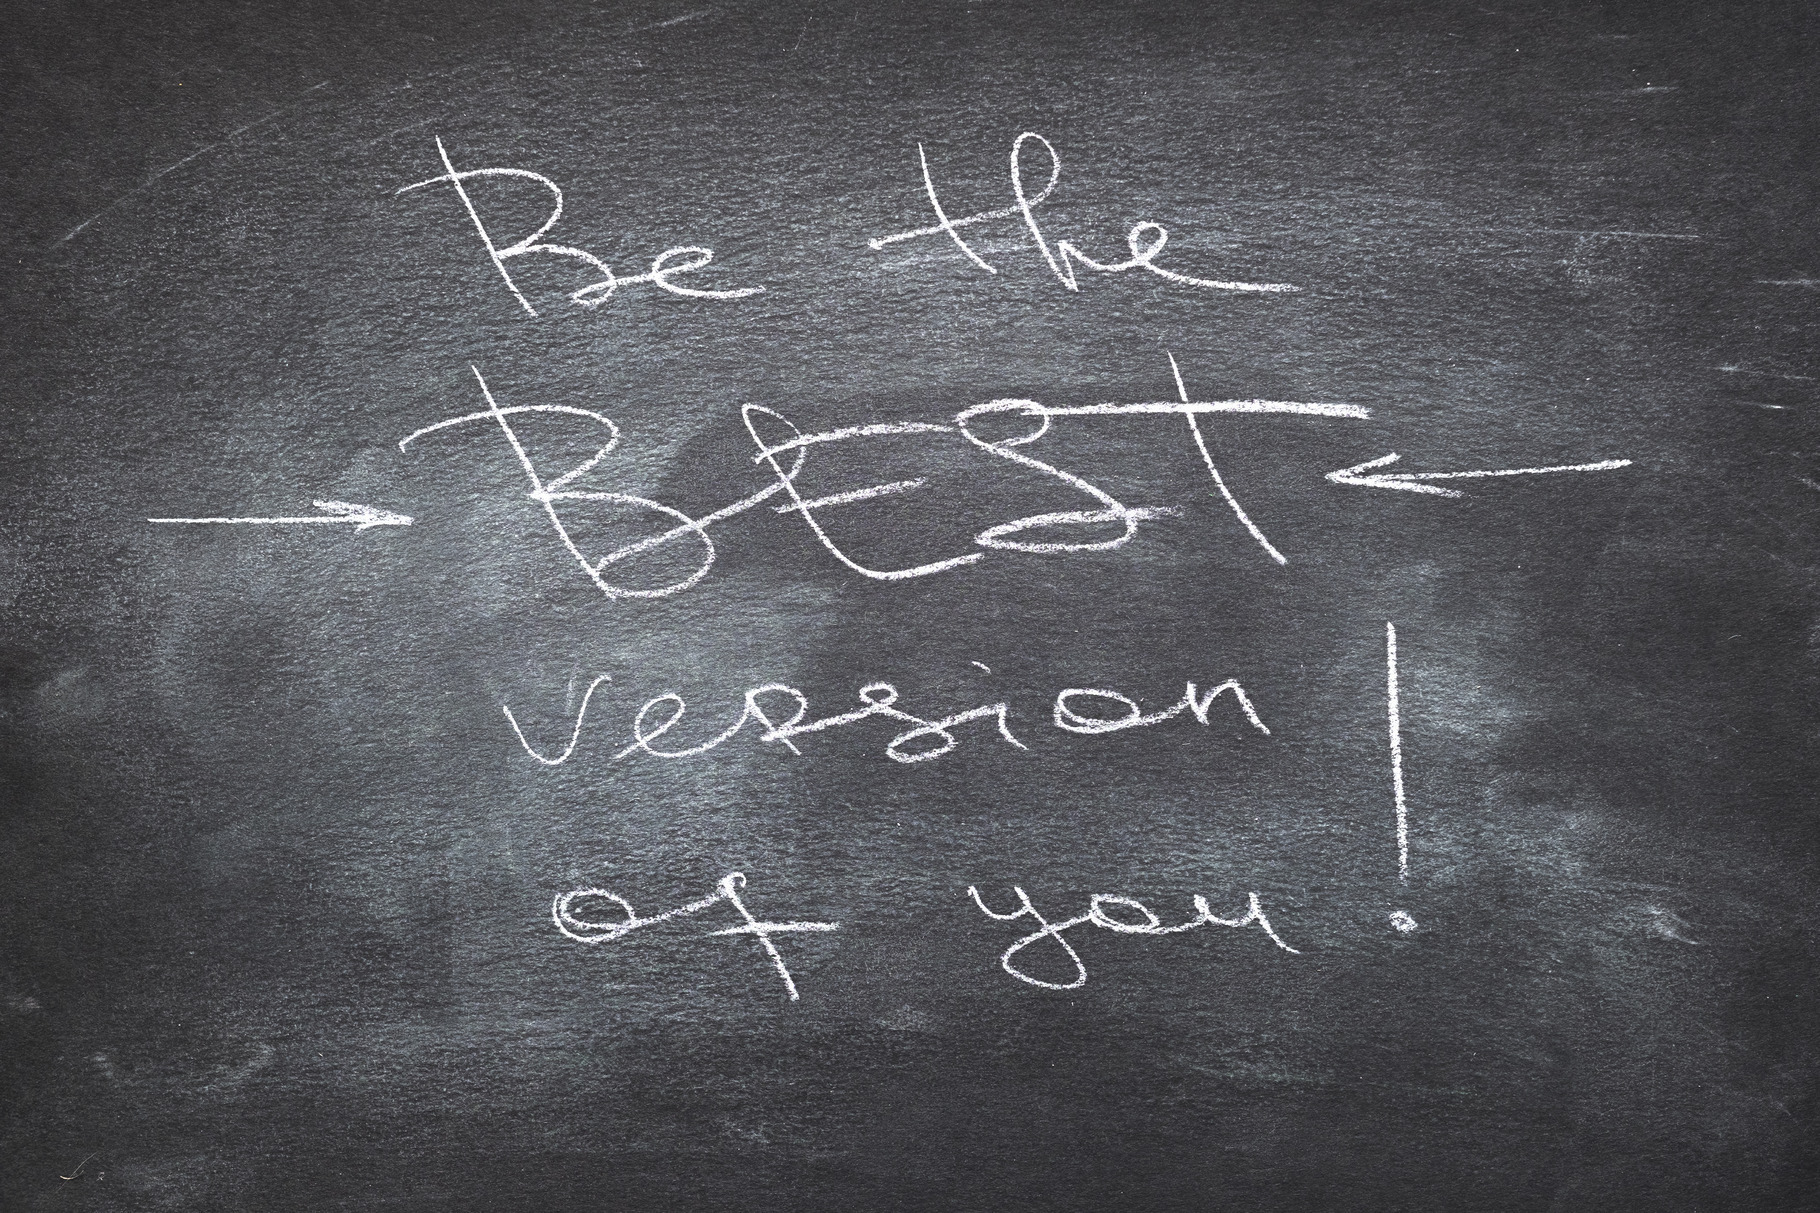 Be the
→ BEST ←
version
of you!